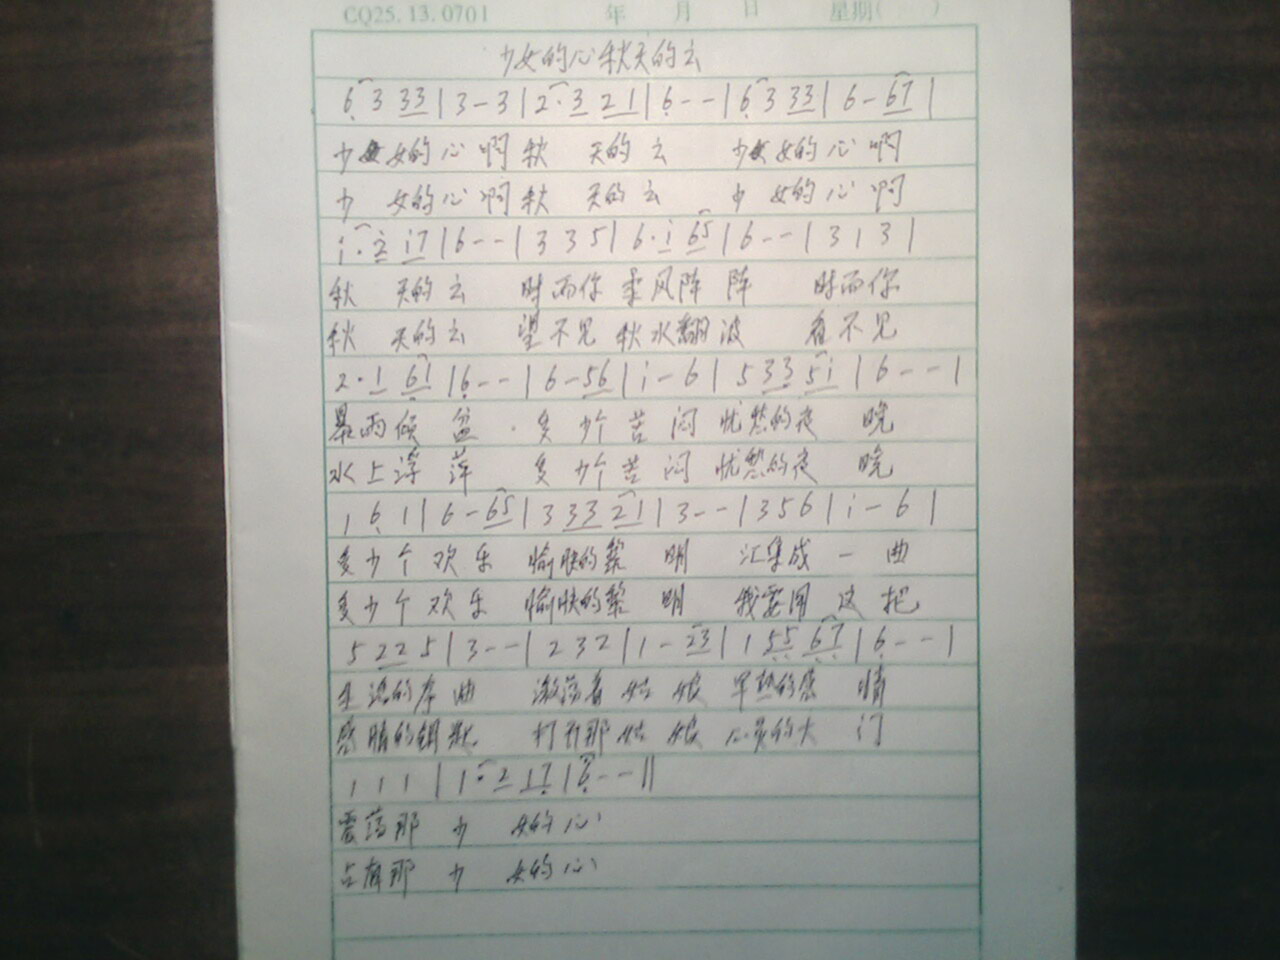 CQ25.13.0701 年 月 日 星期( )
少女的心秋天的云
6 3 33 | 3 - 3 | 2 · 3 21 | 6 - - | 6 3 33 | 6 - 67 |
少女的心啊 秋 天的云 少女的心啊
少 女的心啊 秋 天的云 少 女的心啊
i · 2 i7 | 6 - - | 3 3 5 | 6 · i 65 | 6 - - | 3 1 3 |
秋 天的云 时而你 柔风阵 阵 时而你
秋 天的云 望不见 秋水翻波 看不见
2 · 1 61 | 6 - - | 6 - 56 | i - 6 | 5 33 5i | 6 - - |
暴雨倾 盆 · 多 少个 苦 闷 忧愁的夜 晚
水上浮 萍 多 少个 苦 闷 忧愁的夜 晚
1 6 1 | 6 - 65 | 3 33 21 | 3 - - | 3 5 6 | i - 6 |
多少个 欢 乐 愉快的黎 明 汇集成 一 曲
多少个 欢 乐 愉快的黎 明 我要用 这 把
5 22 5 | 3 - - | 2 3 2 | 1 - 23 | 1 55 67 | 6 - - |
生活的序 曲 激荡着 姑 娘 早熟的感 情
感情的钥 匙 打开那 姑 娘 心灵的大 门
1 1 1 | 1 · 2 17 | 6 - - ||
震荡那 少 女的心
占有那 少 女的心